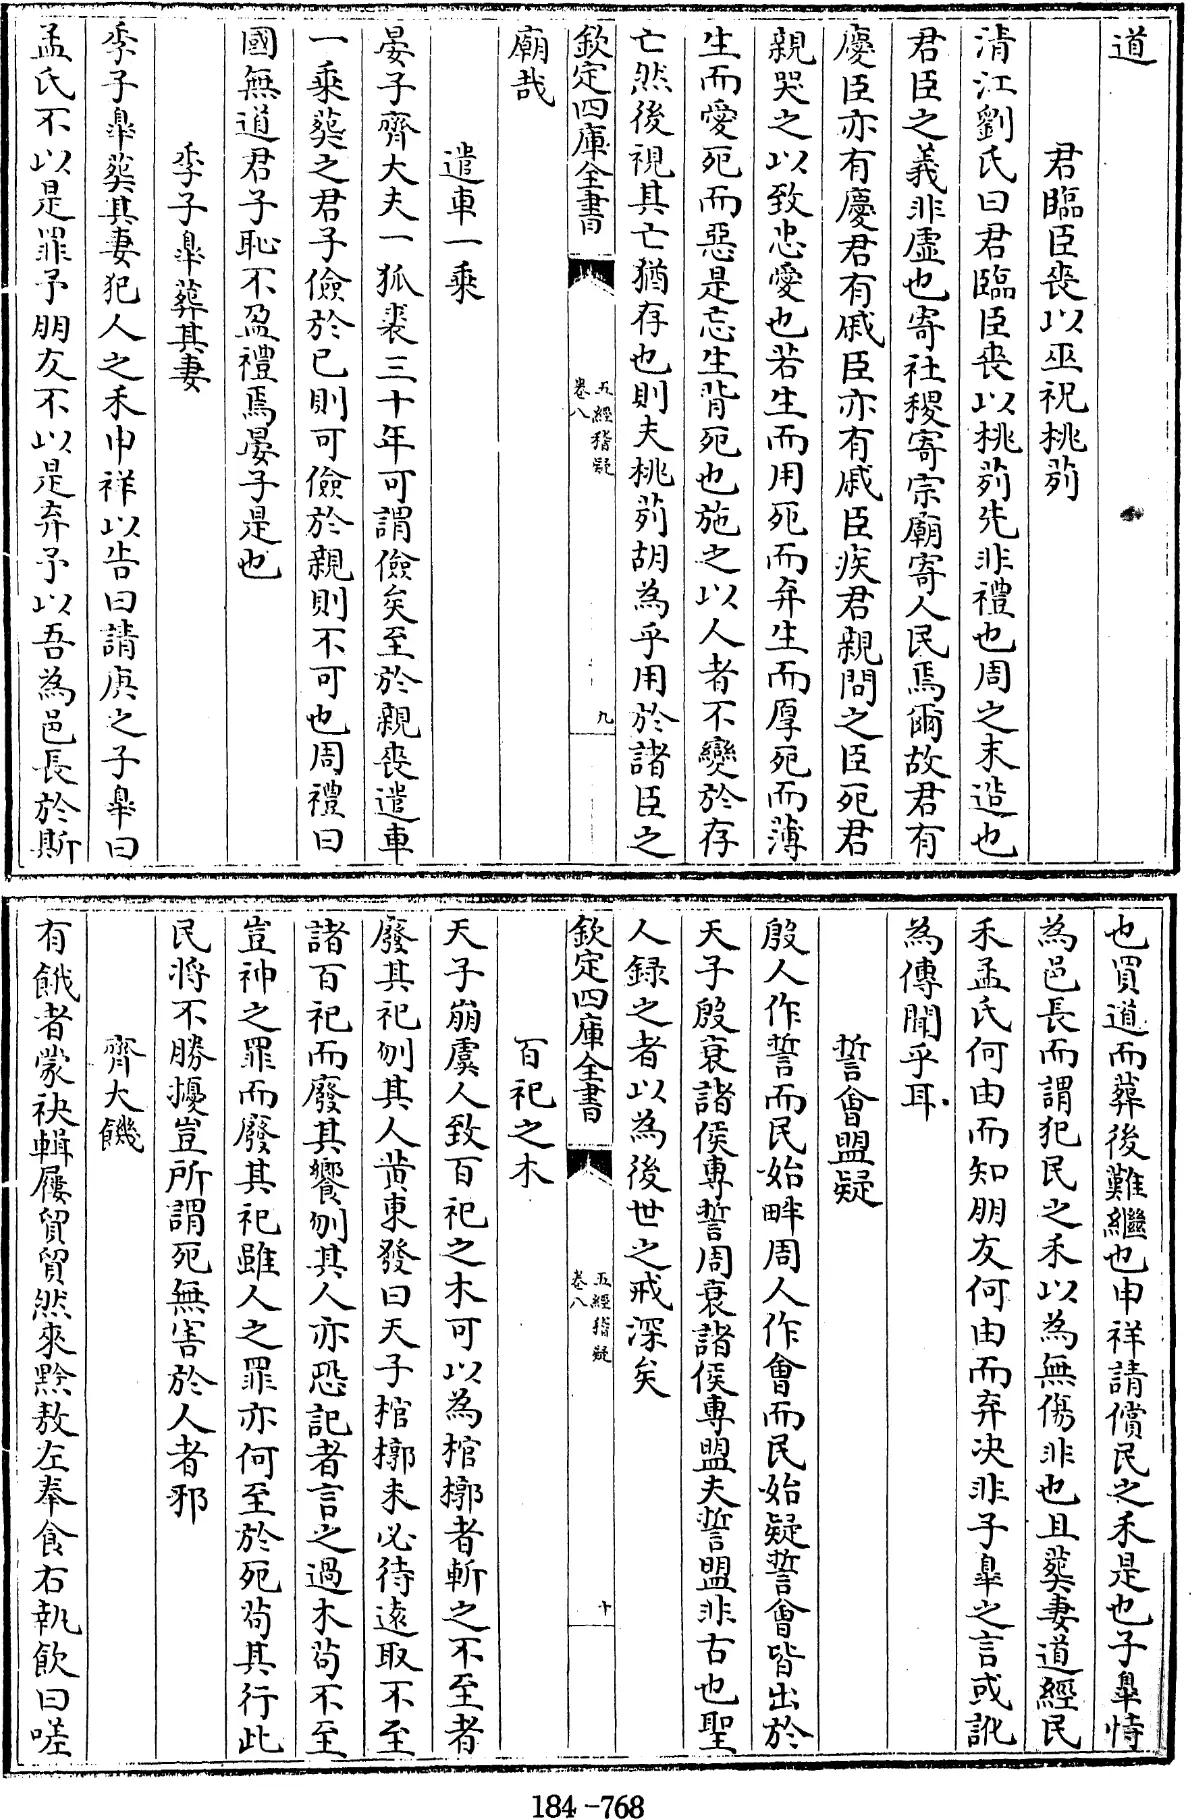 道
君臨臣喪以巫祝桃茢
清江劉氏曰君臨臣喪以桃茢先非禮也周之末造也
君臣之義非虛也寄社稷寄宗廟寄人民焉爾故君有
慶臣亦有慶君有戚臣亦有戚臣疾君親問之臣死君
親哭之以致忠愛也若生而用死而弃生而厚死而薄
生而愛死而惡是忘生背死也施之以人者不變於存
亡然後視其亡猶存也則夫桃茢胡為乎用於諸臣之
欽定四庫全書
五經稽疑
卷八
九
廟哉
遣車一乘
晏子齊大夫一狐裘三十年可謂儉矣至於親喪遣車
一乘葬之君子儉於已則可儉於親則不可也周禮曰
國無道君子恥不盈禮焉晏子是也
季子臯葬其妻
季子臯葬其妻犯人之禾申祥以告曰請庚之子臯曰
孟氏不以是罪予朋友不以是弃予以吾為邑長於斯
也買道而葬後難繼也申祥請償民之禾是也子臯恃
為邑長而謂犯民之禾以為無傷非也且葬妻道經民
禾孟氏何由而知朋友何由而弃决非子臯之言或訛
為傳聞乎耳
誓會盟疑
殷人作誓而民始畔周人作會而民始疑誓會皆出於
天子殷衰諸侯專誓周衰諸侯專盟夫誓盟非古也聖
人録之者以為後世之戒深矣
欽定四庫全書
五經稽疑
卷八
十
百祀之木
天子崩虞人致百祀之木可以為棺槨者斬之不至者
廢其祀刎其人黄東發曰天子棺槨未必待遠取不至
諸百祀而廢其饗刎其人亦恐記者言之過木茍不至
豈神之罪而廢其祀雖人之罪亦何至於死茍其行此
民將不勝擾豈所謂死無害於人者邪
齊大饑
有餓者蒙袂輯屨貿貿然來黔敖左奉食右執飲曰嗟
184-768